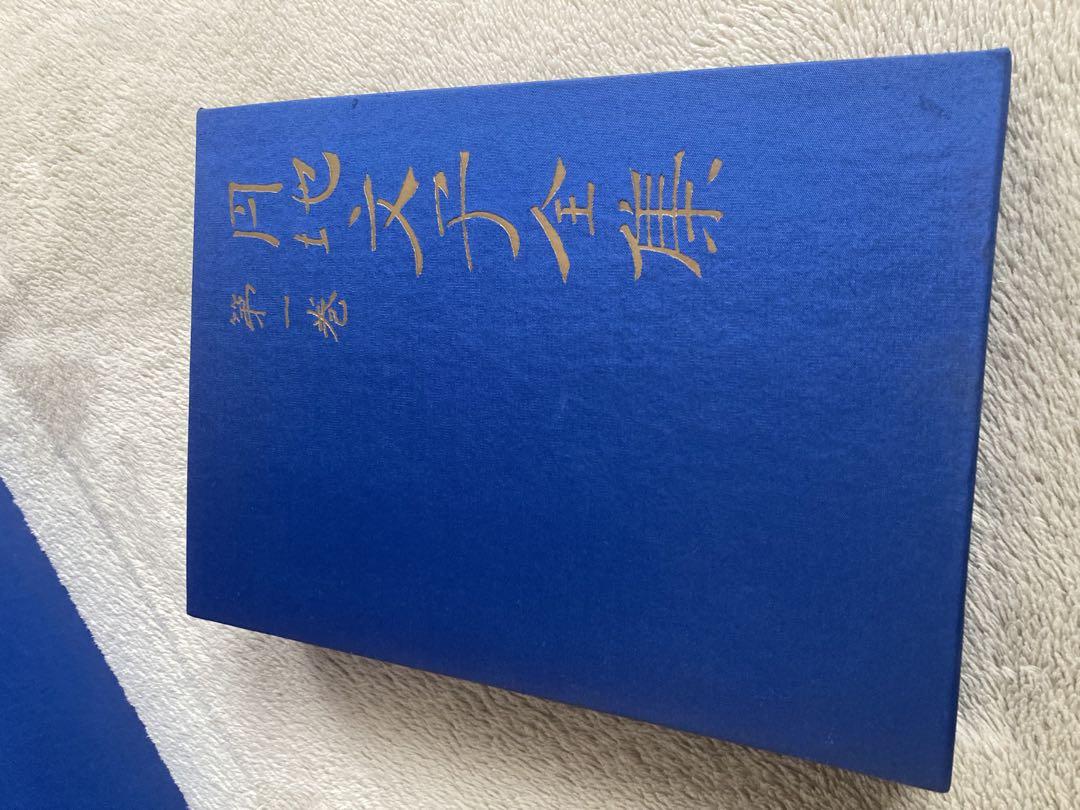 円地文子全集
第一巻